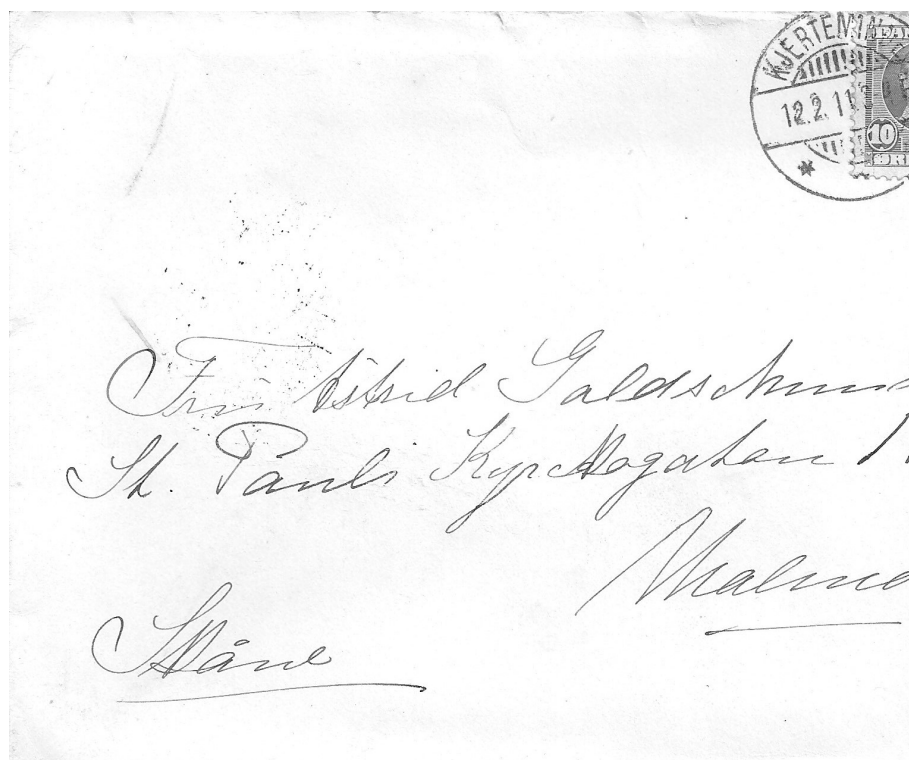 KJERTEMIN
12.2.11
10
ØR
Fru Astrid Goldschm
St. Pauli Kyrkogatan 1
Malmö
Skåne